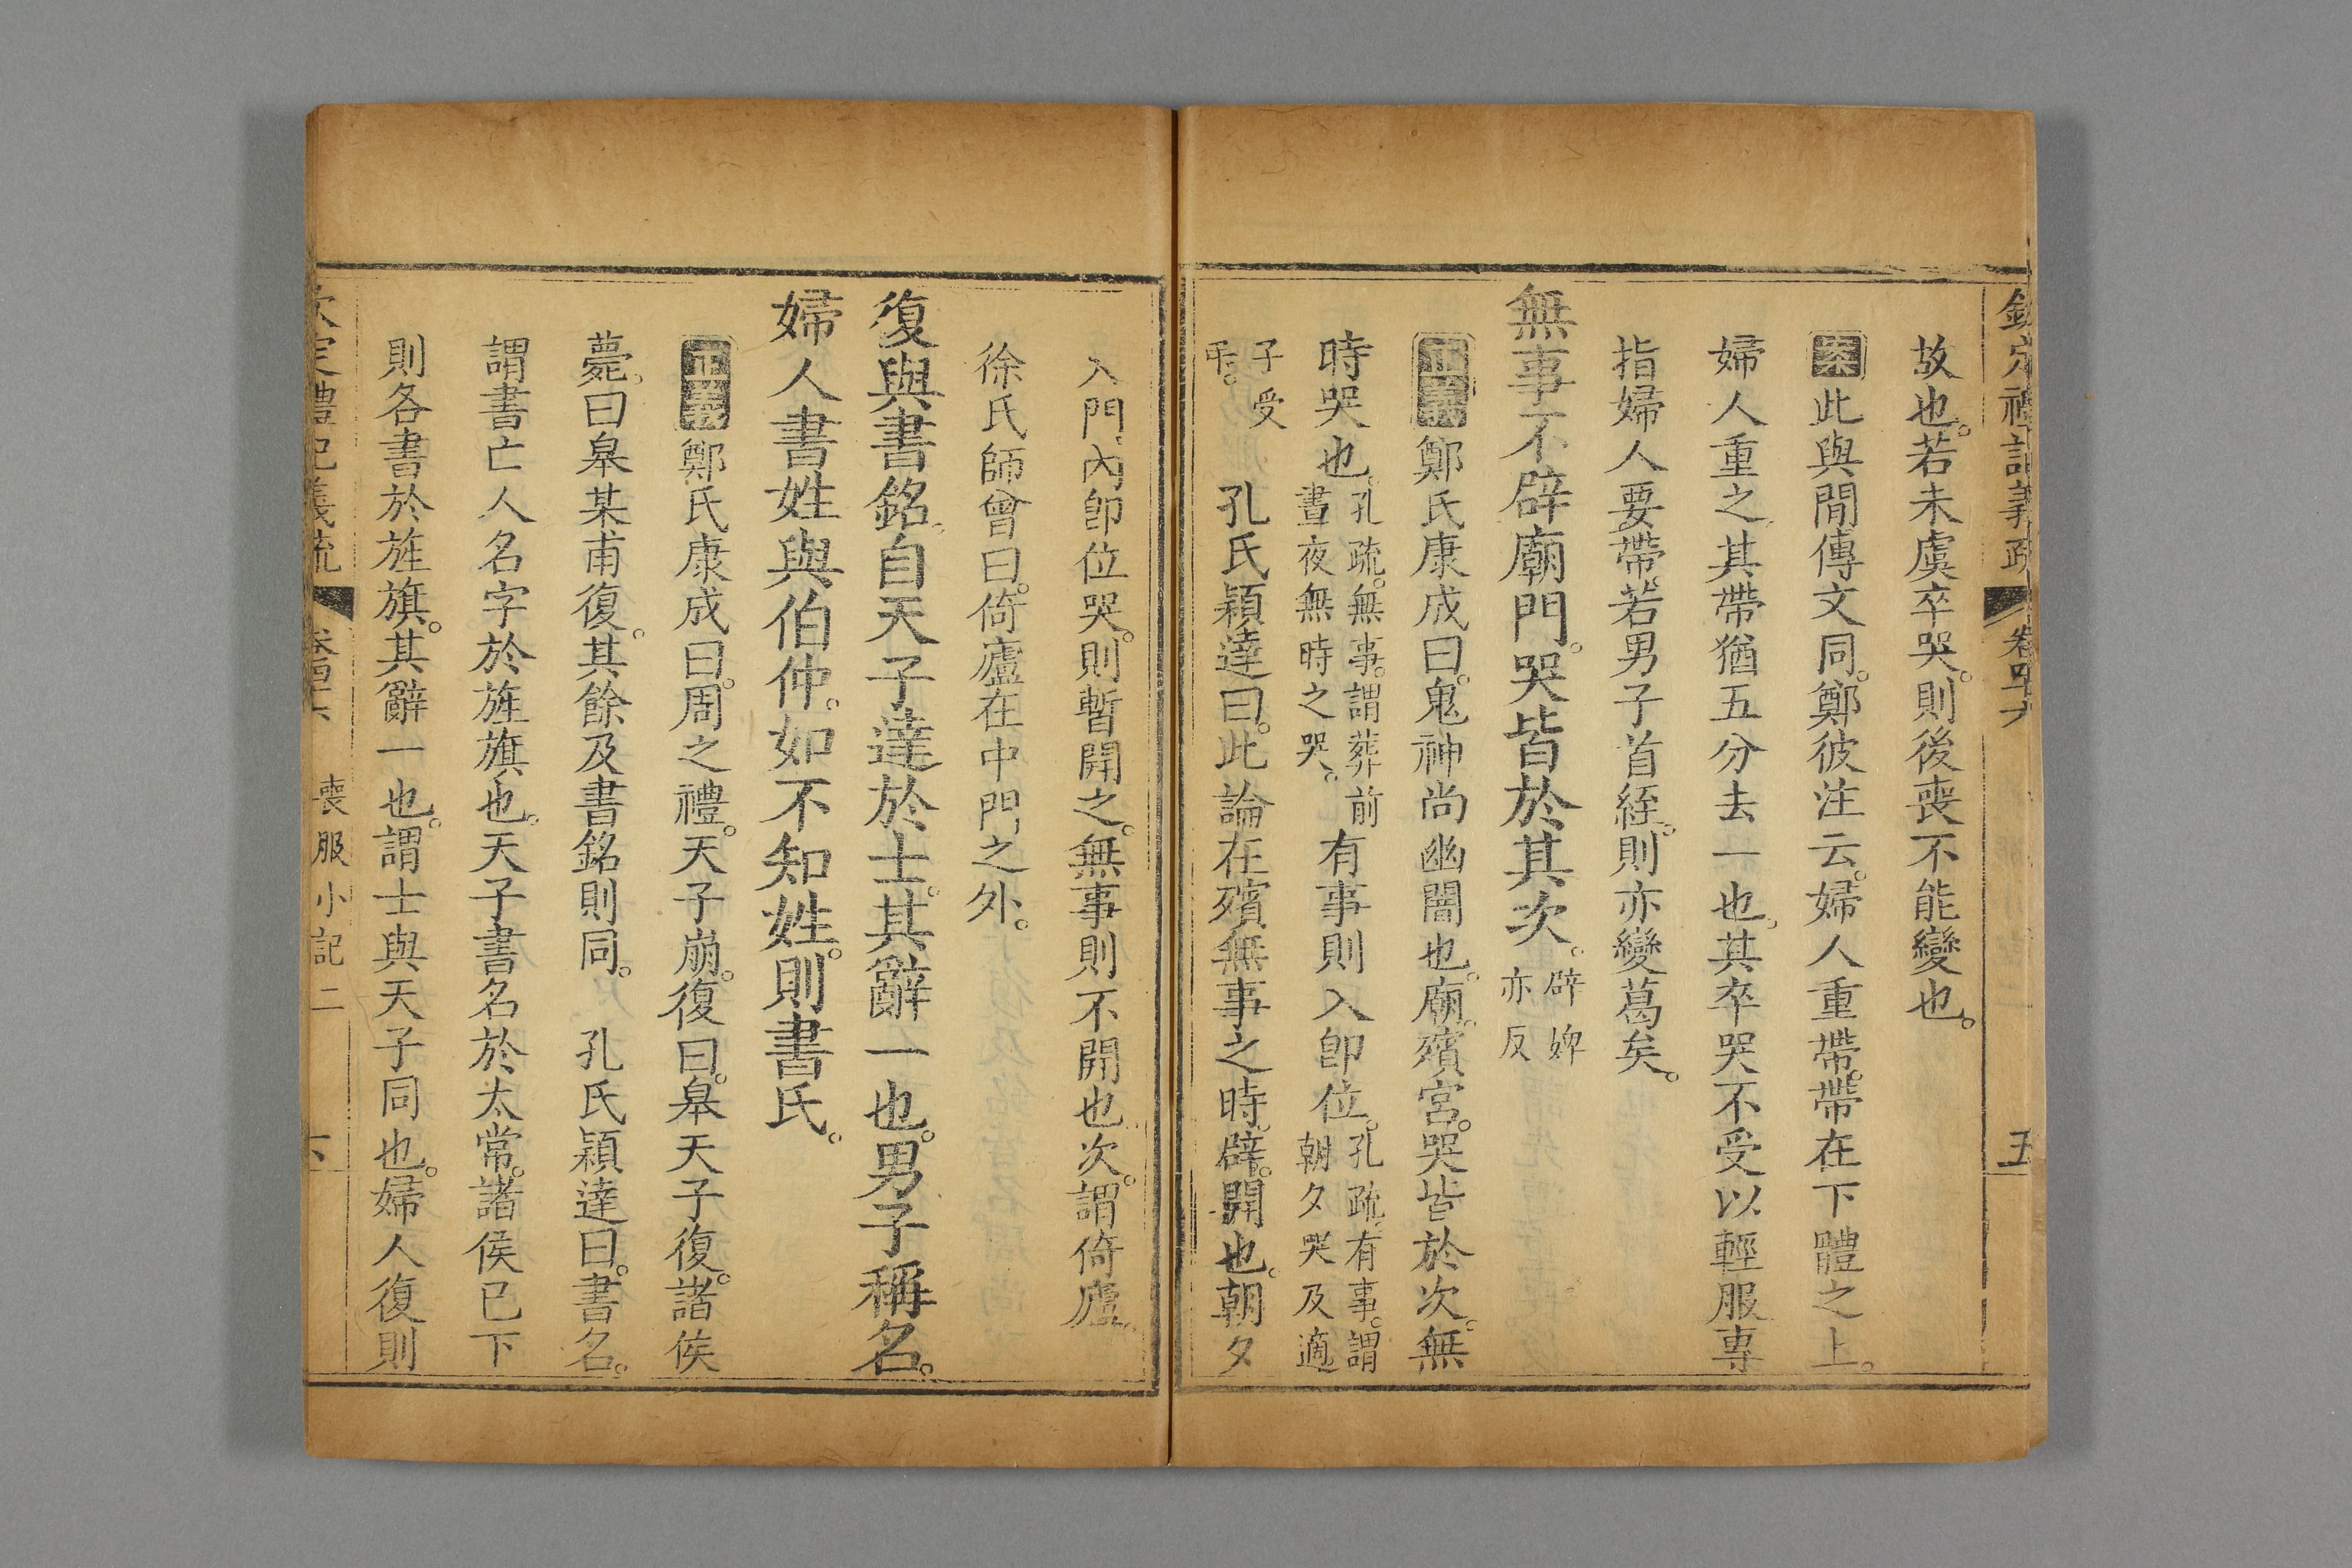 欽定禮記義疏 卷四十六 五
故也。若未虞卒哭。則後喪不能變也。
案此與閒傳文同。鄭彼注云。婦人重帶。帶在下體之上。
婦人重之。其帶猶五分去一也。其卒哭不受以輕服專
指婦人要帶。若男子首絰。則亦變葛矣。
無事不辟廟門。哭皆於其次。辟婢亦反
正義鄭氏康成曰。鬼神尚幽闇也。廟。殯宮。哭皆於次。無
時哭也。孔疏。無事。謂葬前晝夜無時之哭。有事則入即位。孔疏。有事。謂朝夕哭及適
子受弔。孔氏穎達曰。此論在殯無事之時。辟。開也。朝夕
入門內即位哭。則暫開之。無事則不開也。次。謂倚廬。
徐氏師曾曰。倚廬在中門之外。
復與書銘。自天子達於士。其辭一也。男子稱名。
婦人書姓與伯仲。如不知姓。則書氏。
正義鄭氏康成曰。周之禮。天子崩。復曰。皋天子復。諸侯
薨。曰皋某甫復。其餘及書銘則同。 孔氏穎達曰。書名。
謂書亡人名字於旌旗也。天子書名於太常。諸侯已下
則各書於旌旗。其辭一也。謂士與天子同也。婦人復則
欽定禮記義疏 卷四十六 喪服小記二